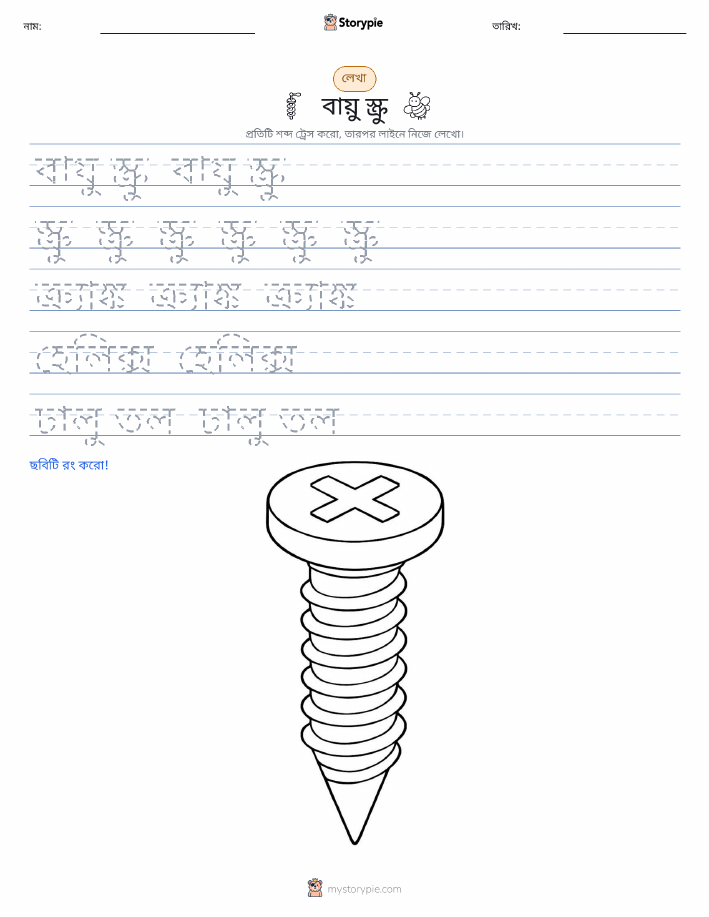 নাম:
Storypie
তারিখ:
লেখা
বায়ু স্ক্রু
প্রতিটি শব্দ ট্রেস করো, তারপর লাইনে নিজে লেখো।
বায়ু স্ক্রু বায়ু স্ক্রু
স্ক্রু স্ক্রু স্ক্রু স্ক্রু স্ক্রু স্ক্রু
ক্র্যাঙ্ক ক্র্যাঙ্ক ক্র্যাঙ্ক
হেলিক্স হেলিক্স
ঢালু তল ঢালু তল
ছবিটি রং করো!
mystorypie.com